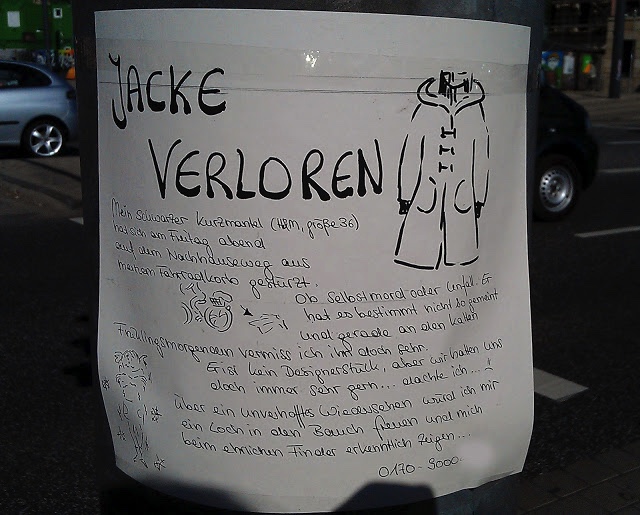 JACKE
VERLOREN
Mein schwarzer Kurzmantel (H&M, größe 36)
hat sich am Freitag abend
auf dem Nachhauseweg aus
meinem Fahrradkorb gestürzt.
Ob Selbstmord oder Unfall. Er
hat es bestimmt nicht so gemeint
und gerade an den kalten
Frühlingsmorgenden vermiss ich ihn doch sehr.
Er ist kein Designerstück, aber wir hatten uns
doch immer sehr gern... dachte ich...
Über ein unverhofftes Wiedersehen würd ich mir
ein Loch in den Bauch freuen und mich
beim ehrlichen Finder erkenntlich zeigen...
0170 - 9000